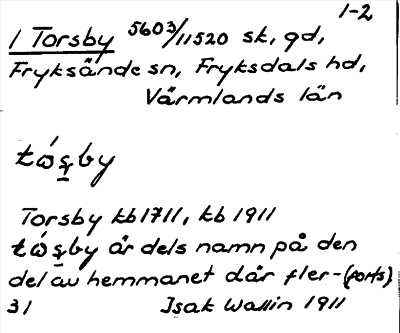 1-2
1 Torsby 5603/11520 sk, gd,
Fryksände sn, Fryksdals hd,
Värmlands län
tó̱şby
Torsby kb 1711, kb 1911
tó̱şby är dels namn på den
del av hemmanet där fler- (forts)
31 Isak Wallin 1911